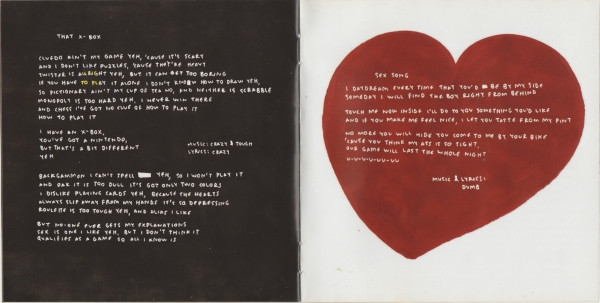 THAT X-BOX
CLUEDO AIN'T MY GAME YEH, 'CAUSE IT'S SCARY
AND I DON'T LIKE PUZZLES, 'CAUSE THEY'RE HEAVY
TWISTER IS ALLRIGHT YEH, BUT IT CAN GET TOO BORING
IF YOU HAVE TO PLAY IT ALONE I DON'T KNOW HOW TO DRAW YEH,
SO PICTIONARY AIN'T MY CUP OF TEA NO, AND NEITHER IS SCRABBLE
MONOPOLY IS TOO HARD YEH, I NEVER WIN THERE
AND CHESS I'VE GOT NO CLUE OF HOW TO PLAY IT
HOW TO PLAY IT
I HAVE AN X-BOX,
YOU'VE GOT A NINTENDO,
BUT THAT'S A BIT DIFFERENT
YEH
MUSIC: CRAZY & TOUGH
LYRICS: CRAZY
BACKGAMMON I CAN'T SPELL YEH, SO I WON'T PLAY IT
AND OAK IT IS TOO DULL IT'S GOT ONLY TWO COLORS
I DISLIKE PLAYING CARDS YEH, BECAUSE THE HEARTS
ALWAYS SLIP AWAY FROM MY HANDS IT'S SO DEPRESSING
ROULETTE IS TOO TOUGH YEH, AND ALIAS I LIKE
BUT NO-ONE EVER GETS MY EXPLANATIONS
SEX IS ONE I LIKE YEH, BUT I DON'T THINK IT
QUALIFIES AS A GAME SO ALL I KNOW IS
SEX SONG
I DAYDREAM EVERY TIME THAT YOU'D BE BY MY SIDE
SOMEDAY I WILL FIND THE BOY RIGHT FROM BEHIND
TOUCH ME NOW INSIDE I'LL DO TO YOU SOMETHING YOU'D LIKE
AND IF YOU MAKE ME FEEL NICE, I LET YOU TASTE FROM MY PINT
NO MORE YOU WILL HIDE YOU COME TO ME BY YOUR BIKE
'CAUSE YOU THINK MY ASS IS SO TIGHT,
OUR GAME WILL LAST THE WHOLE NIGHT
U-U-U-U-UU-UU
MUSIC & LYRICS:
DUMB